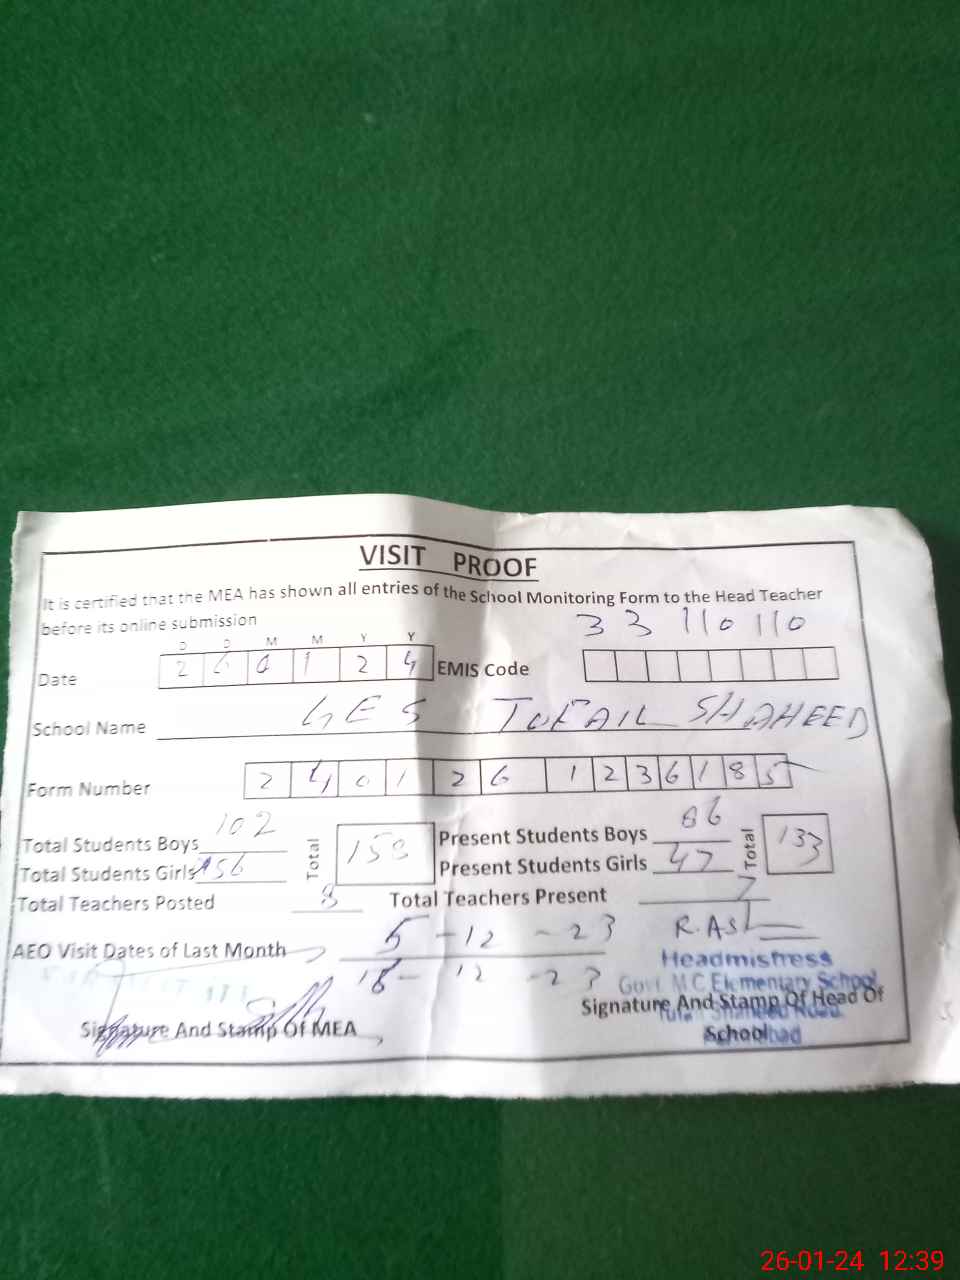 VISIT PROOF
It is certified that the MEA has shown all entries of the School Monitoring Form to the Head Teacher
before its online submission
33110110
D D M M Y Y
Date 2 6 0 1 2 4 EMIS Code
School Name GES TUFAIL SHAHEED
Form Number 2 4 0 1 2 6 1 2 3 6 1 8 5
Total Students Boys 102 Total 158 Present Students Boys 86 Total 133
Total Students Girls 56 Present Students Girls 47
Total Teachers Posted 8 Total Teachers Present 7
AEO Visit Dates of Last Month 5-12-23
18-12-23
Headmistress
Govt M.C Elementary School
Signature And Stamp Of Head Of
School
Signature And Stamp Of MEA
26-01-24 12:39